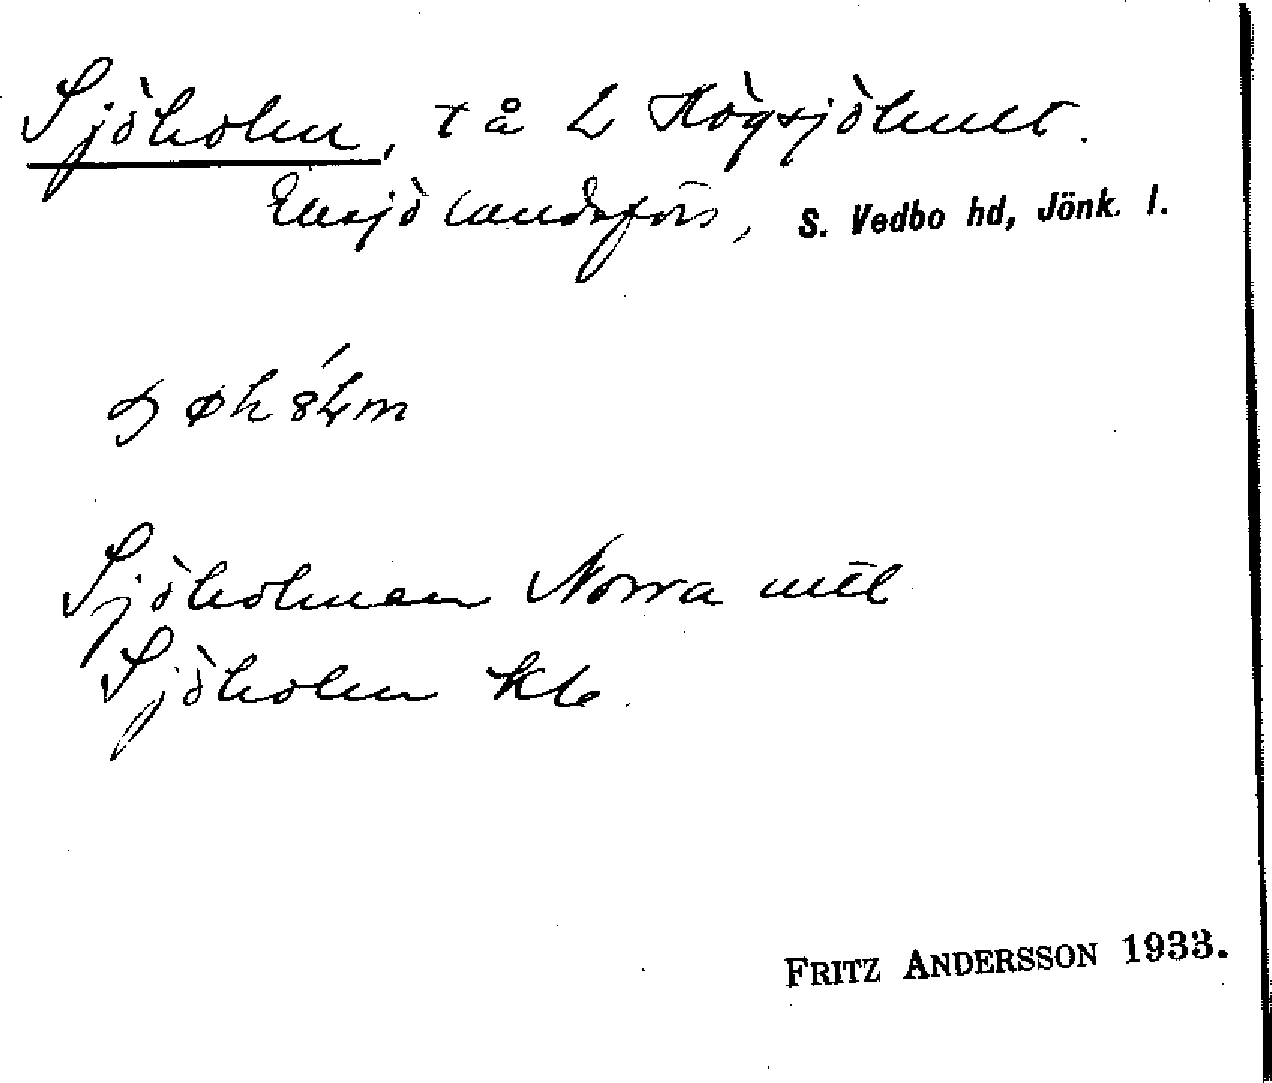 Sjöholm, t å L Högsjöhult.
Eksjö landsförs, S. Vedbo hd, Jönk. l.
Sjöholmen Norra mtl
Sjöholm kb.
FRITZ ANDERSSON 1933.